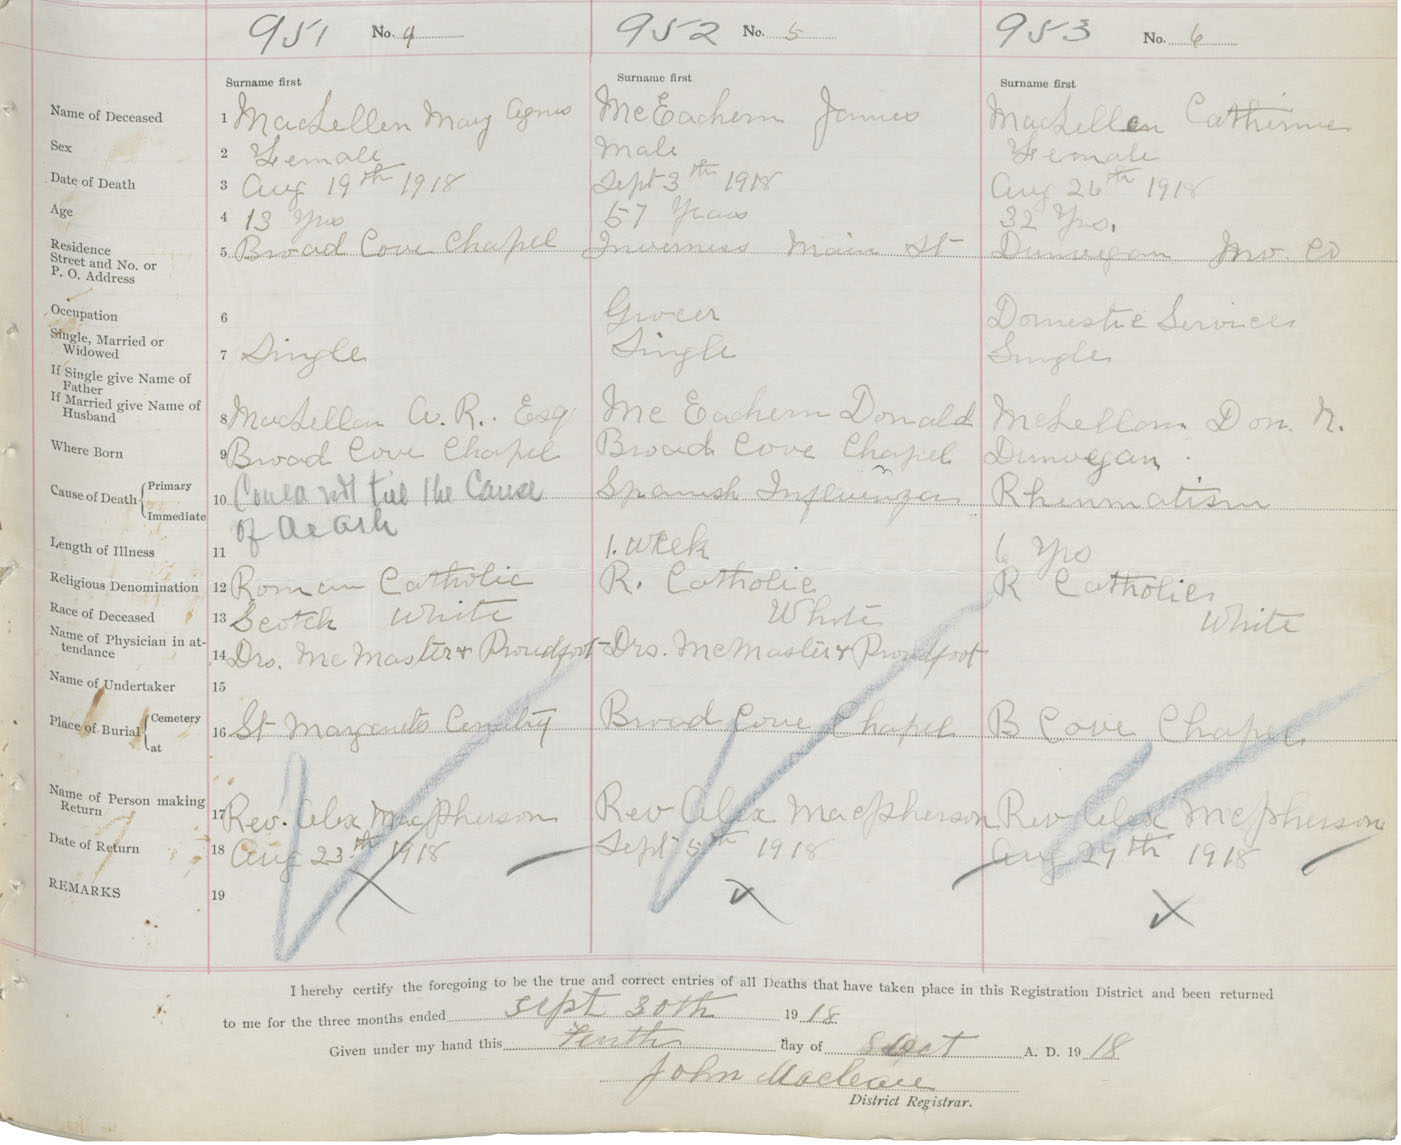 951 No. 4 952 No. 5 953 No. 6
Surname first Surname first Surname first
Name of Deceased 1 MacLellen Mary Agnes McEachern James MacLellen Catherine
Sex 2 Female Male Female
Date of Death 3 Aug 19th 1918 Sept 3th 1918 Aug 26th 1918
Age 4 13 Yrs 57 Years 32 Yrs.
Residence
Street and No. or
P. O. Address
5 Broad Cove Chapel Inverness Main St Dunvegan Inv. Co
Occupation 6 Grocer Domestic Services
Single, Married or
Widowed
7 Single Single Single
If Single give Name of
Father
If Married give Name of
Husband
8 MacLellan A. R. Esq McEachern Donald McLellan Don. N.
Where Born 9 Broad Cove Chapel Broad Cove Chapel Dunvegan
Cause of Death Primary
Immediate
10 Could not tell the Cause Spanish Influenza Rheumatism
of death
Length of Illness 11 1. week 6 Yrs
Religious Denomination 12 Roman Catholic R. Catholic R Catholic
Race of Deceased 13 Scotch White White White
Name of Physician in at-
tendance
14 Drs. McMaster & Proudfoot Drs. McMaster & Proudfoot
Name of Undertaker 15
Place of Burial Cemetery
at
16 St Margarets Cemetry Broad Cove Chapel B Cove Chapel
Name of Person making
Return
17 Rev. Alex MacPherson Rev Alex MacPherson Rev Alex McPherson
Date of Return 18 Aug 23th 1918 Sept 5th 1918 Aug 29th 1918
REMARKS 19
I hereby certify the foregoing to be the true and correct entries of all Deaths that have taken place in this Registration District and been returned
to me for the three months ended Sept 30th 1918
Given under my hand this Tenth day of Oct A. D. 1918
John Maclean
District Registrar.